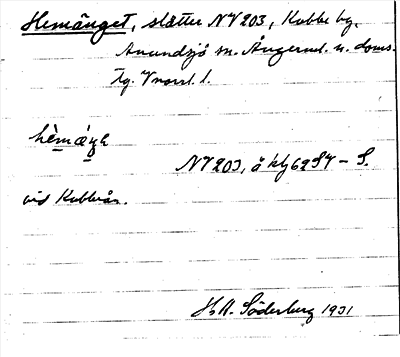 Hemänget, slåtter NV 203, Kubbe by.
Anundsjö sn. Ångerml. n. doms.
tg. Vnorrl. l.
hèmǽŋe
NV 203, ö klj 62 SV - S.
vid Kubbeån.
H. A. Söderberg 1931